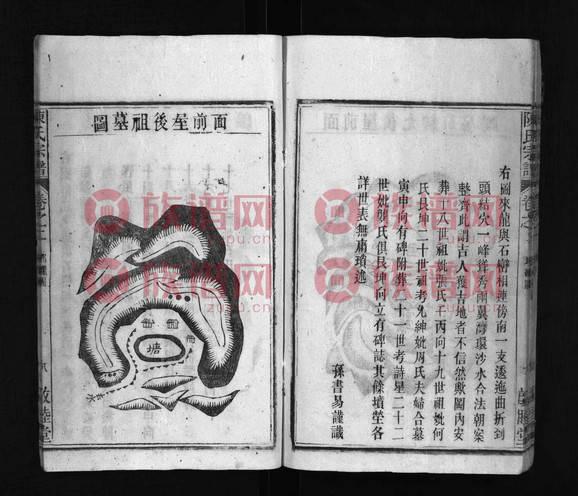 面前堊後祖墓圖
塘
陳氏宗譜
卷之
敦睦堂
右圖來龍與石靜相連傍南一支透迤曲折到
頭結穴一峰聳秀兩翼灣環沙水合法朝案
整齊古謂吉人獲吉地者不信然歟圖內安
葬十八世祖妣張氏子丙向十九世祖妣何
氏艮坤二十世祖考允紳妣周氏夫婦合墓
寅申向有碑附葬二十一世考詩星二十二
世妣龔氏俱艮坤向立有碑誌其餘墳塋各
詳世表無庸瑣述
孫書易謹識
陳氏宗譜
卷之
敦睦堂
族谱网
zupu.cn
族谱网
zupu.cn
族谱网
zupu.cn
族谱网
zupu.cn